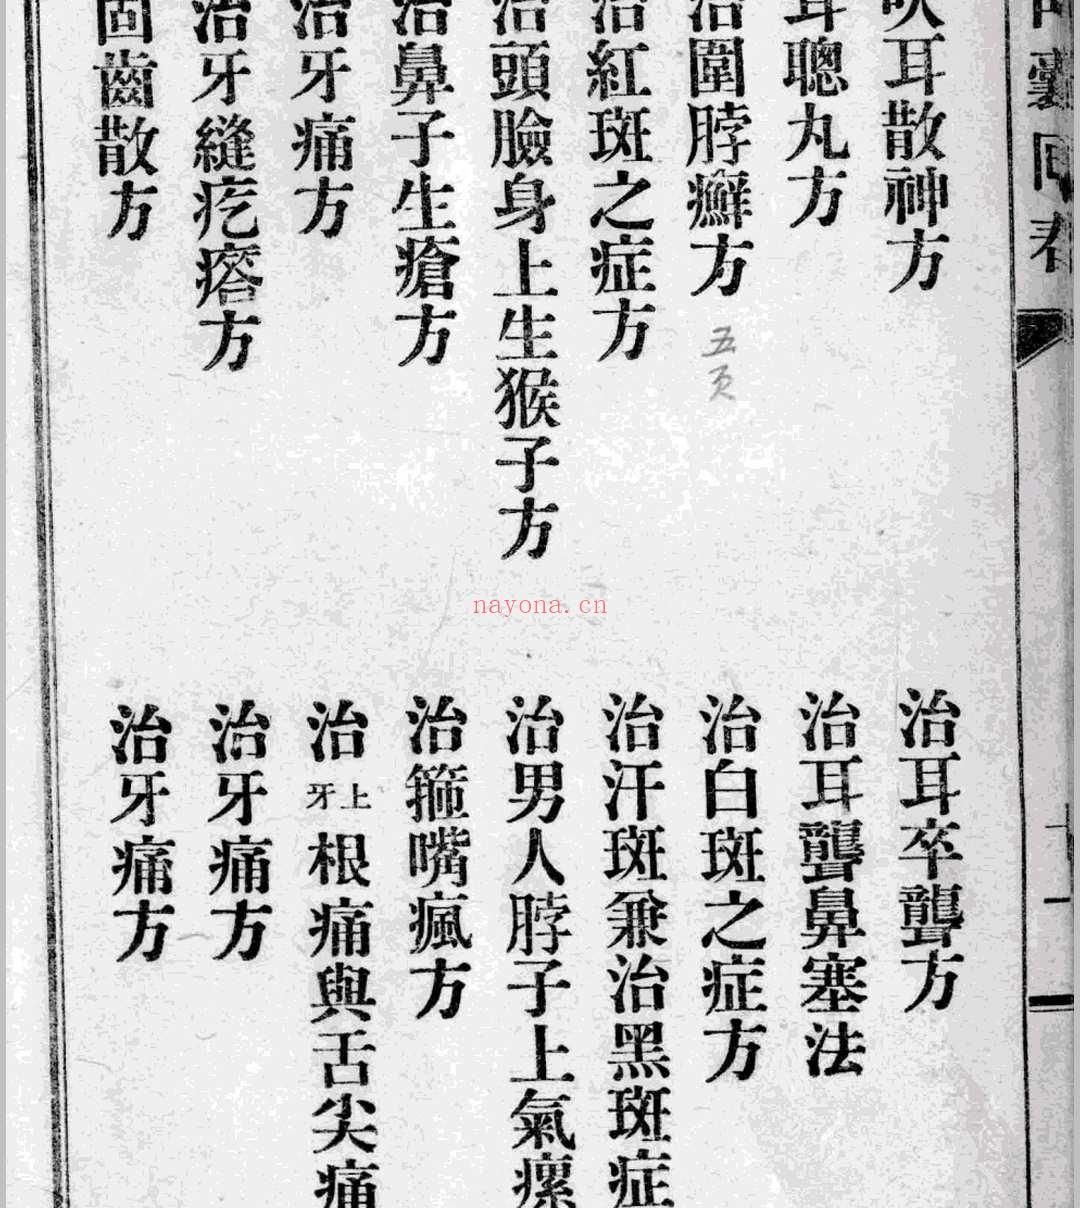 吹耳散神方
治耳卒聾方
耳聰丸方
治耳聾鼻塞法
治圍脖癬方
五页
治白斑之症方
治紅斑之症方
治汗斑兼治黑斑症
治頭臉身上生猴子方
治男人脖子上氣瘰
治鼻子生瘡方
治箍嘴瘋方
治牙痛方
治上牙根痛與舌尖痛
治牙縫疙瘩方
治牙痛方
固齒散方
治牙痛方
囊回春
nayona.cn